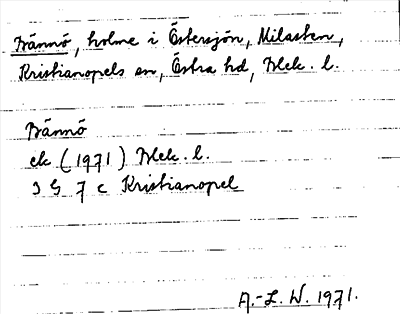 Bännö, holme i Östersjön, Milasten,
Kristianopels sn, Östra hd, Blek. l.
Bännö
ek (1971) Blek. l.
3 G 7 c Kristianopel
A.-L. W. 1971.